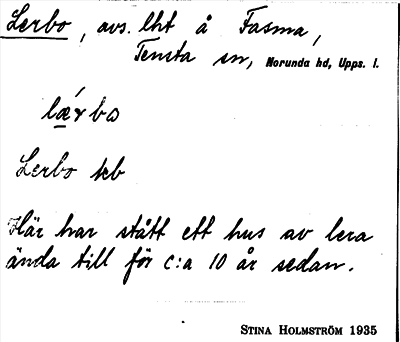 Lerbo, avs. lht å Fasma,
Tensta sn, Norunda hd, Upps. l.
lǽrbo
Lerbo teb
Här har stått ett hus av lera
ända till för c:a 10 år sedan.
STINA HOLMSTRÖM 1935